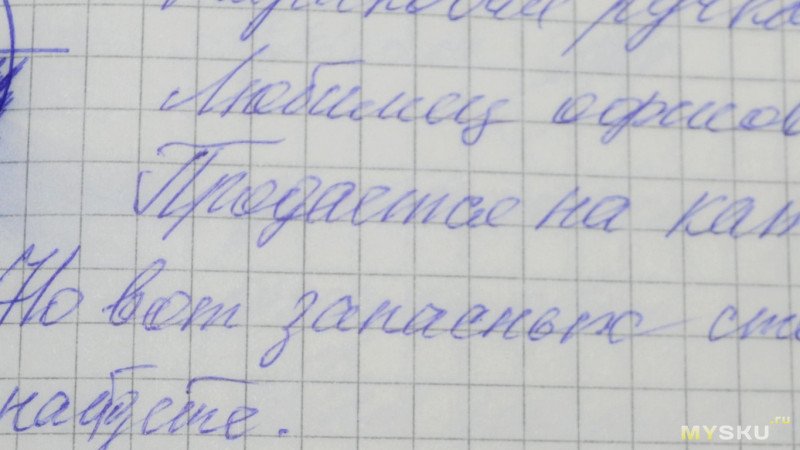 ручка
Любимец офисов
Продается на кан
Но вот запасных сте
найдете.
MYSKU.ru